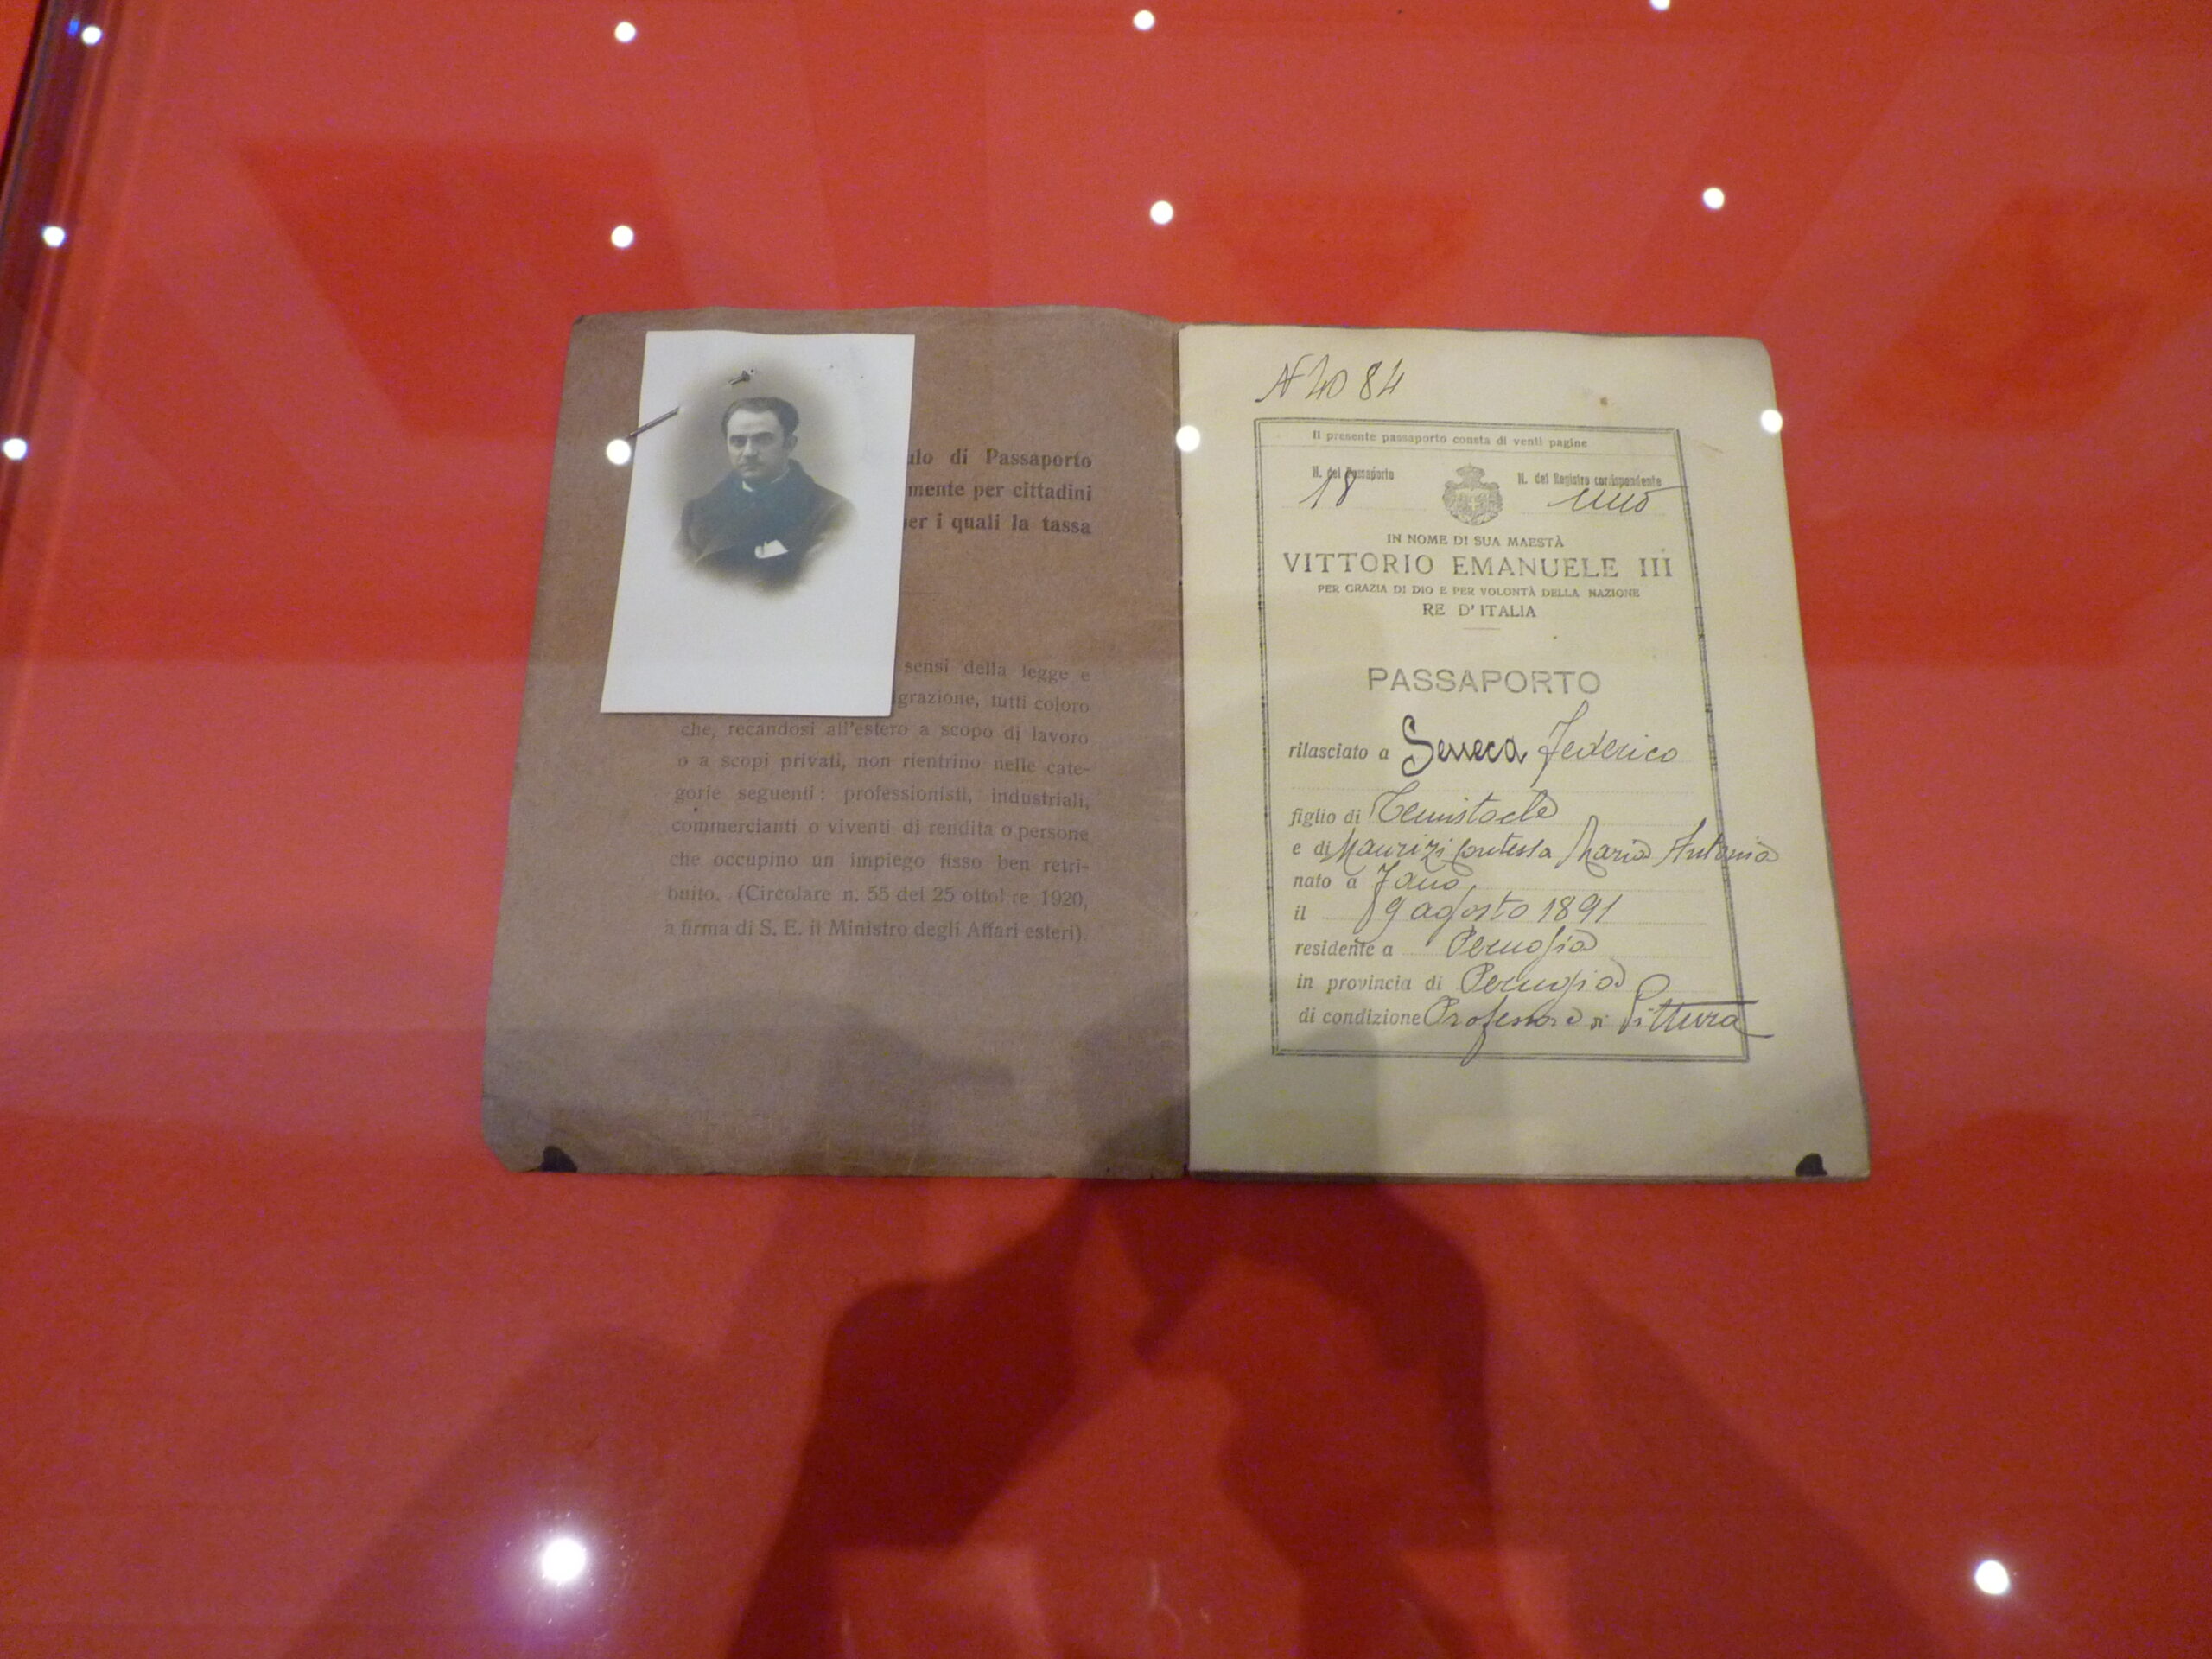 ulo di Passaporto
mente per cittadini
er i quali la tassa
sensi della legge e
grazione, tutti coloro
che, recandosi all'estero a scopo di lavoro
o a scopi privati, non rientrino nelle cate-
gorie seguenti: professionisti, industriali,
commercianti o viventi di rendita o persone
che occupino un impiego fisso ben retri-
buito. (Circolare n. 55 del 25 ottobre 1920,
a firma di S. E. il Ministro degli Affari esteri).
N 4084
Il presente passaporto consta di venti pagine
N. del Passaporto
18
N. del Registro corrispondente
uno
IN NOME DI SUA MAESTÀ
VITTORIO EMANUELE III
PER GRAZIA DI DIO E PER VOLONTÀ DELLA NAZIONE
RE D'ITALIA
PASSAPORTO
rilasciato a Seneca Federico
figlio di Temistocle
e di Maurizi Contessa Maria Antonia
nato a Fano
il 9 agosto 1891
residente a Perugia
in provincia di Perugia
di condizione Professore di Pittura